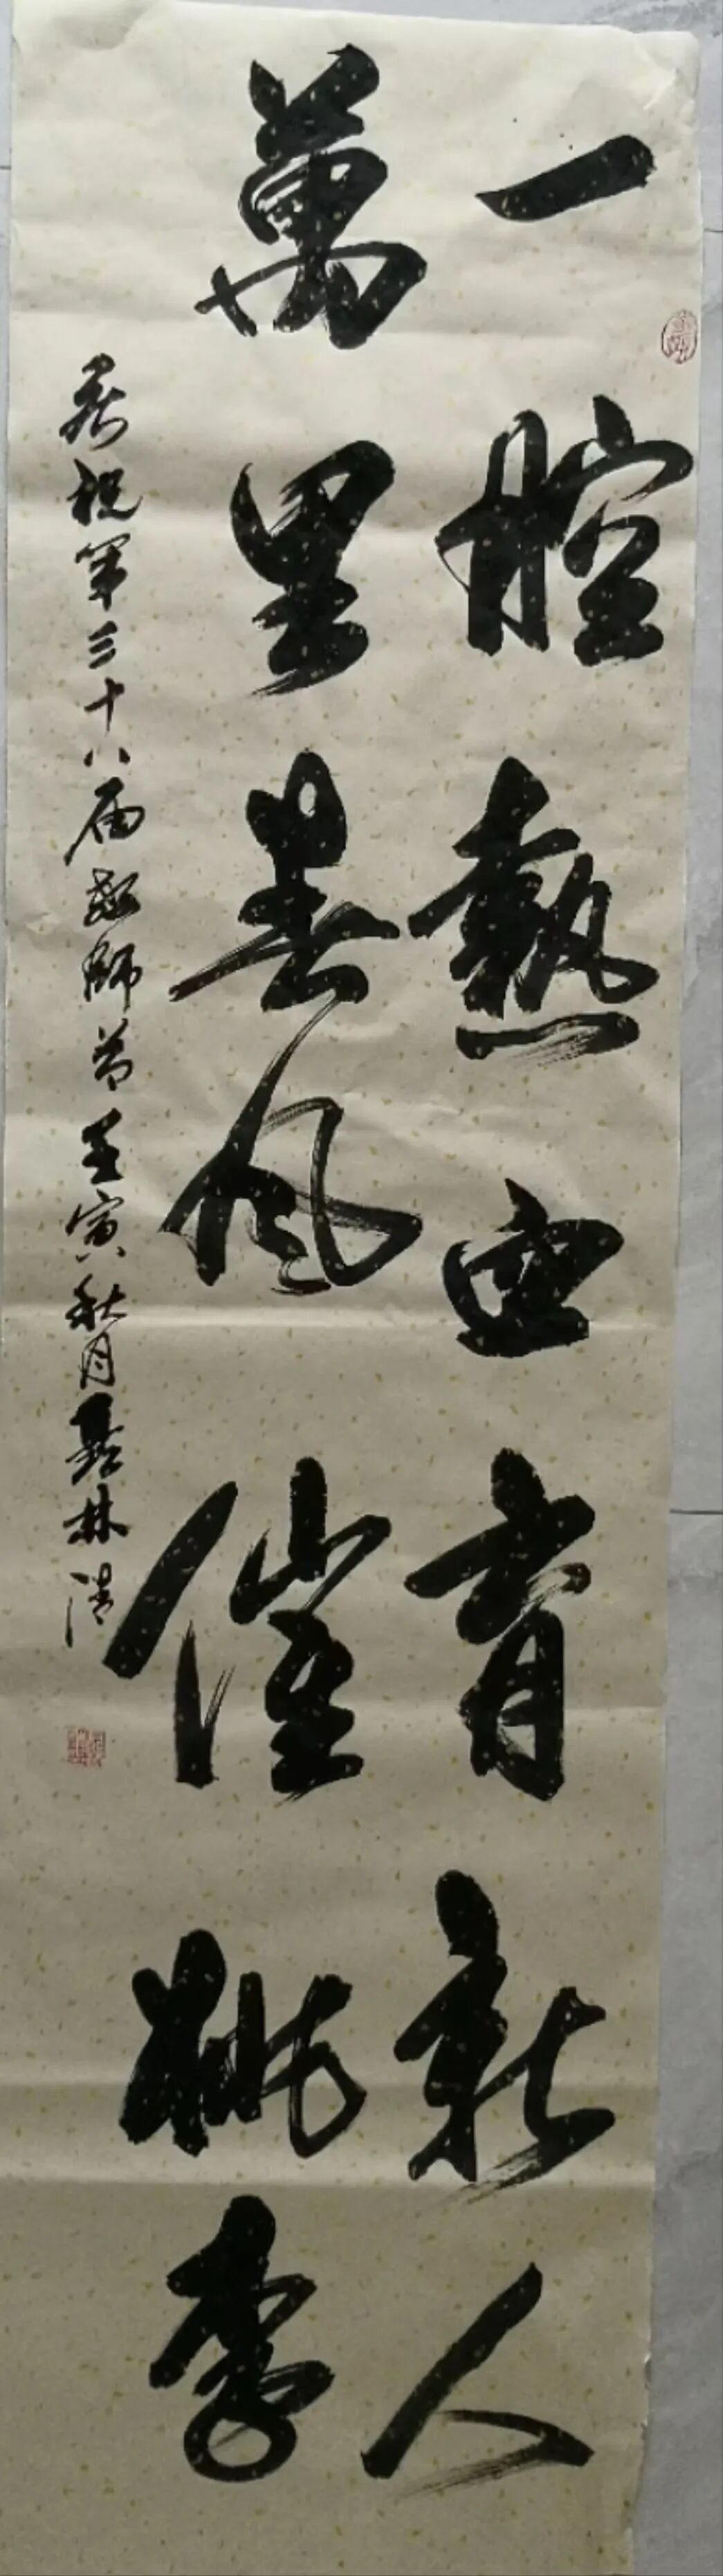 一腔熱血育新人
萬里春風催桃李
恭祝第三十八届教師节壬寅秋月聂林清